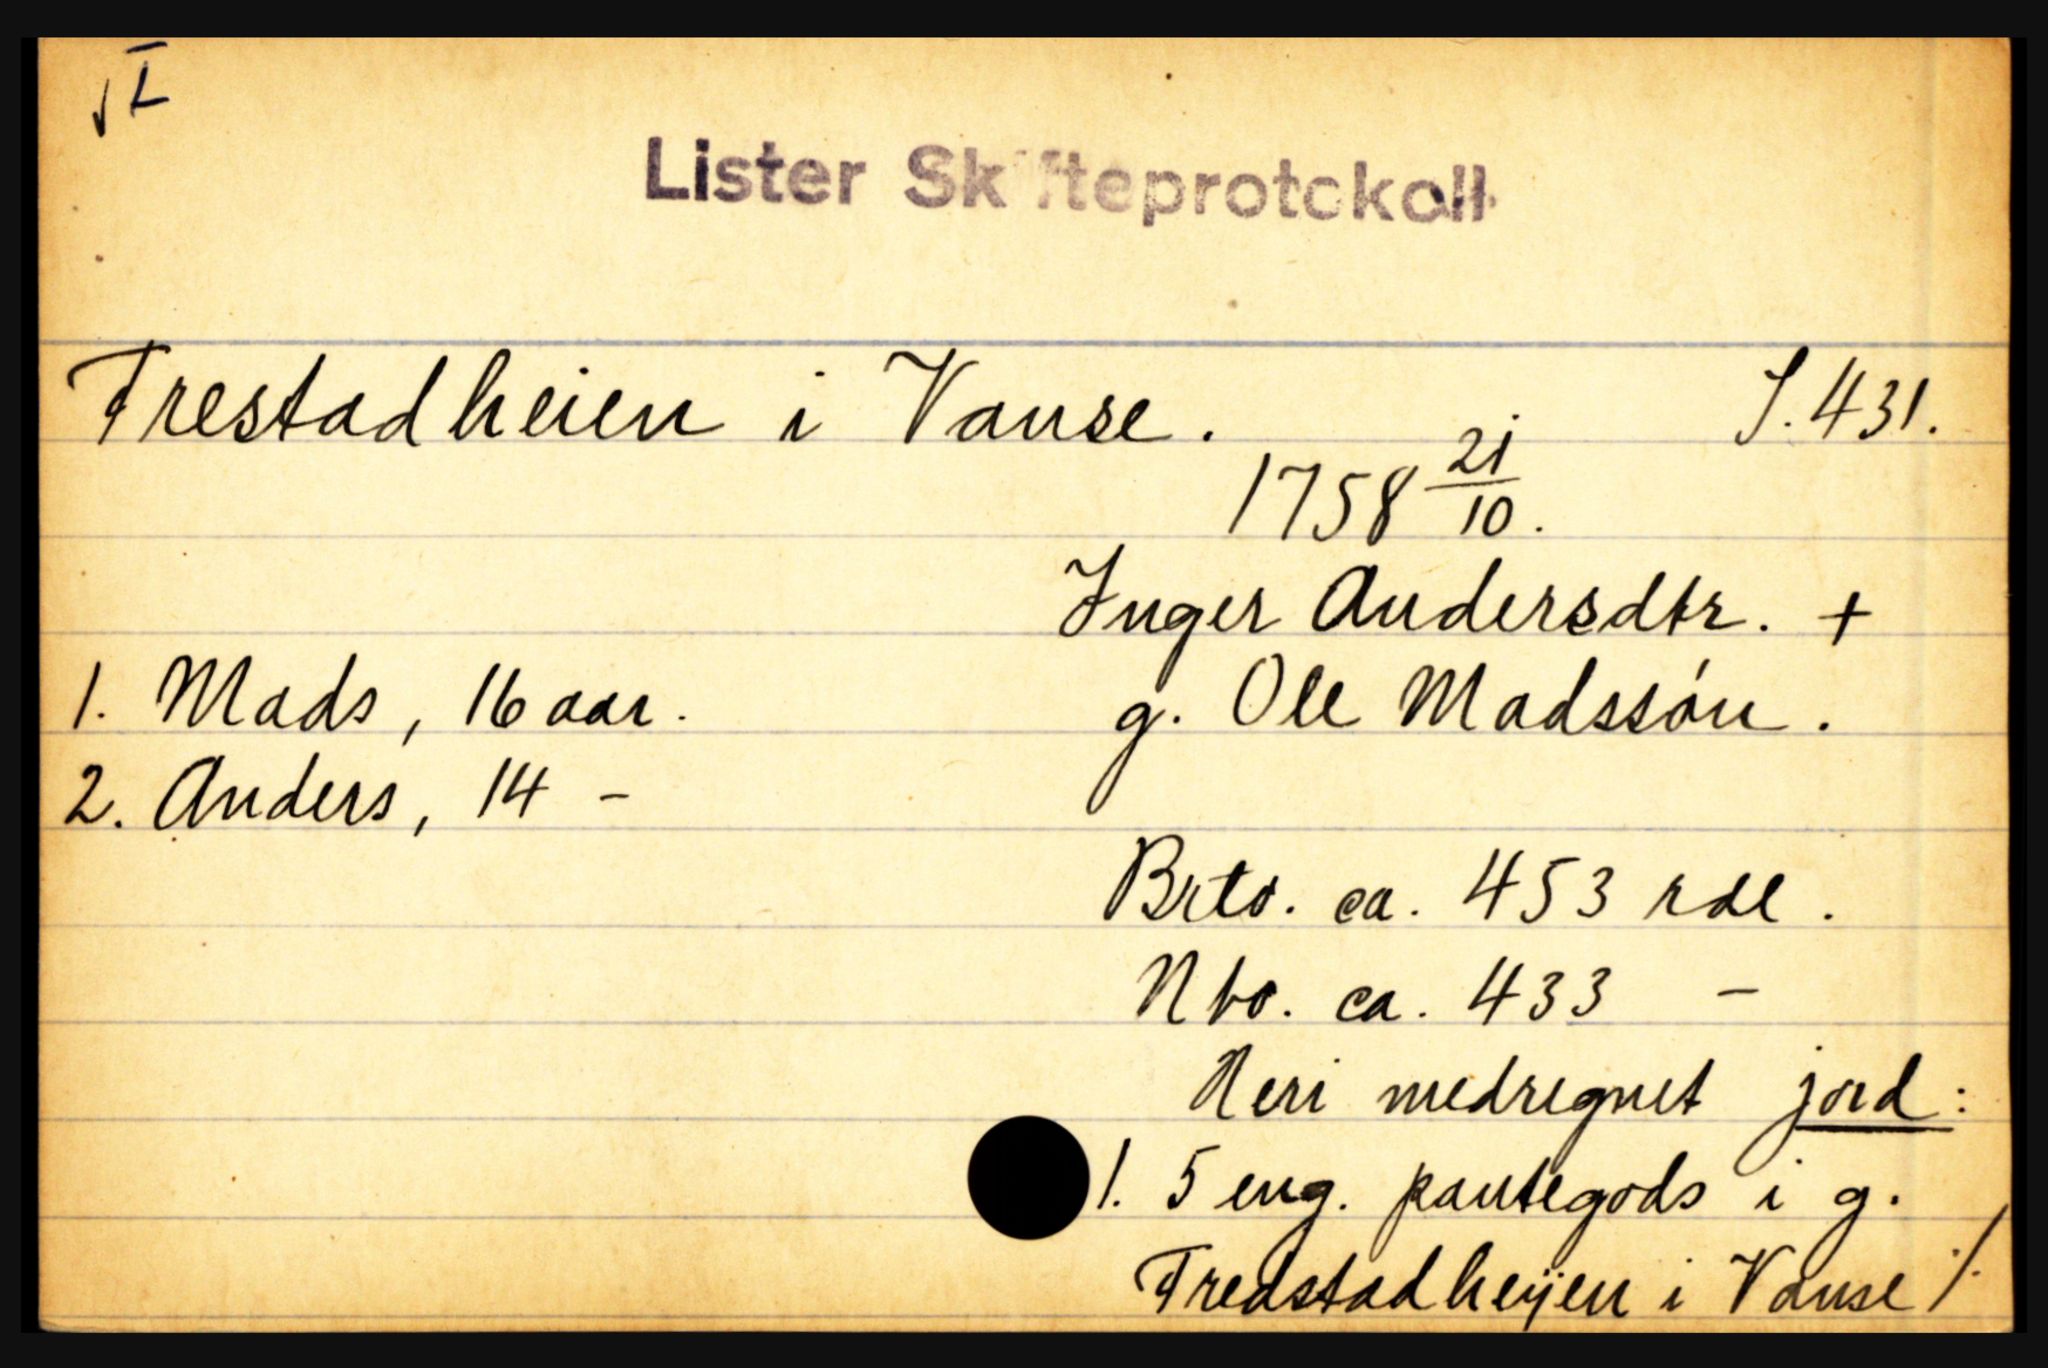 √ I
Lister Skifteprotokoll
Frestadheien i Vanse. S. 431.
1758 21/10.
Inger Andersdtr. +
1. Mads, 16 aar. g. Ole Madssön.
2. Anders, 14 -
Brto. ca. 453 rdl.
Nto. ca. 433 -
Heri medregnet jord:
1. 5 eng. pantegods i g.
Fredstadheijen i Vanse ./.